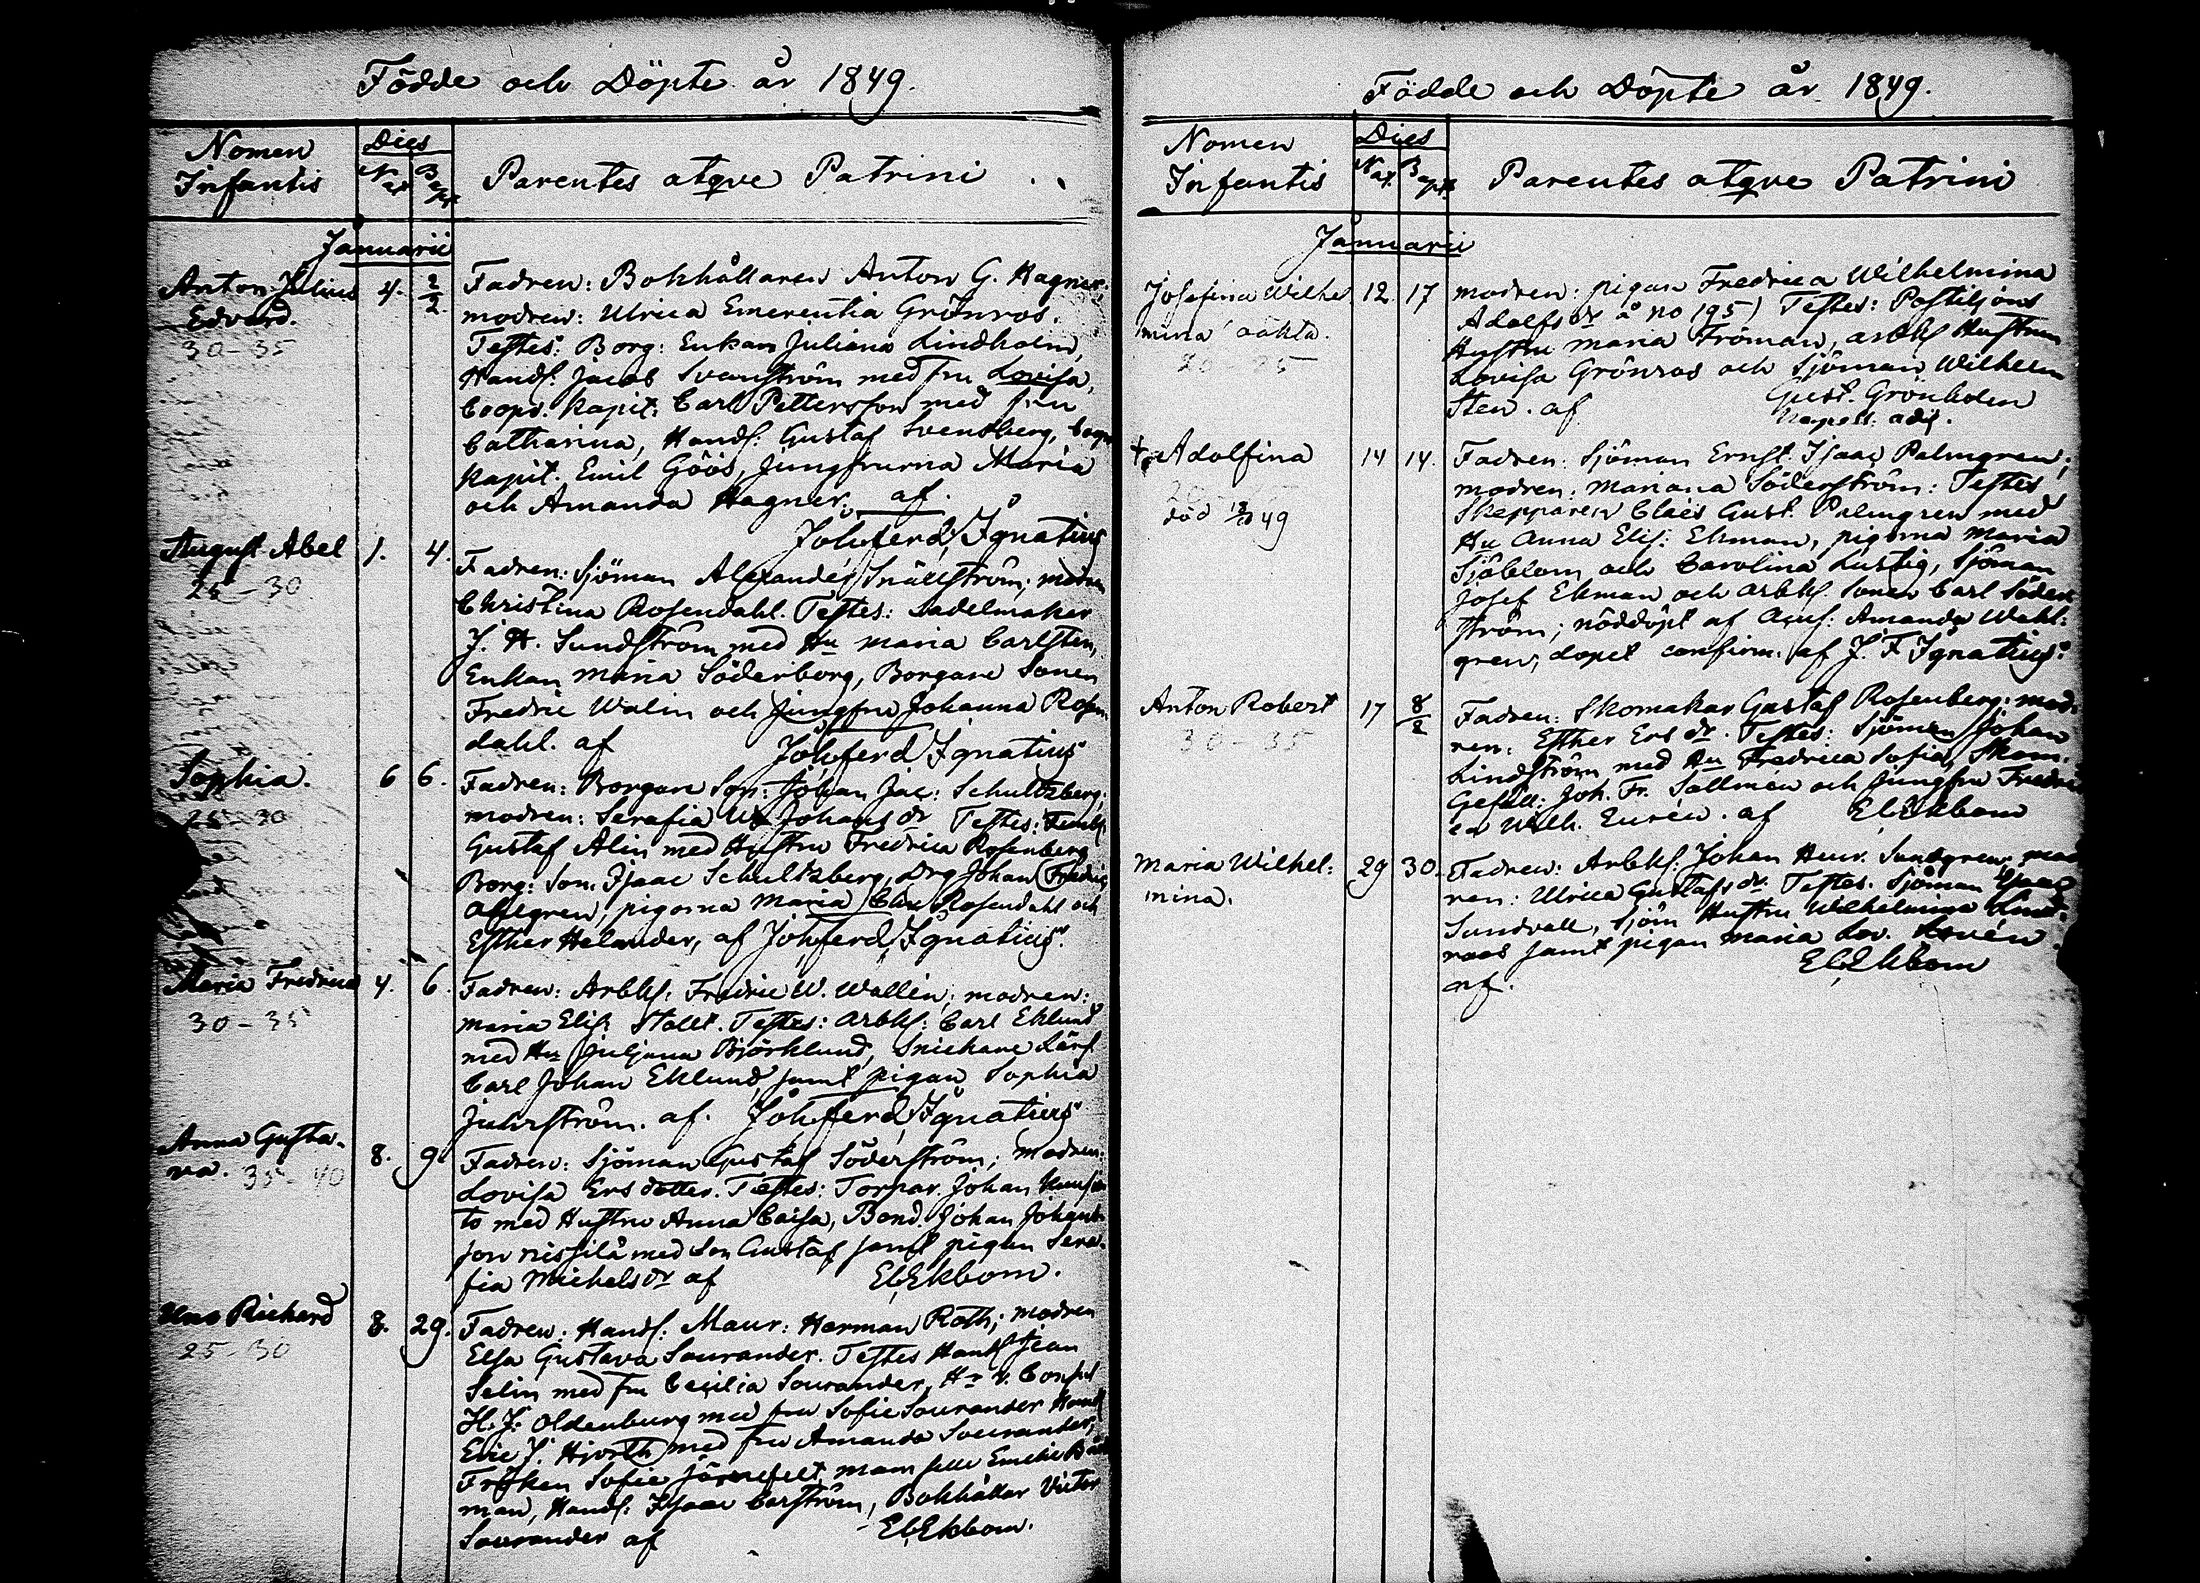 Födde och Döpte år 1849.
Nomen Infantis
Dies
Nat. Bapt.
Parentes atqve Patrini
Januarii
Anton Julius
Edvard.
30-35
4. 2/2
Fadren: Bokhållaren Anton G. Hagner.
modren: Ulrica Emerentia Grönros.
Testes: Borg: Enkan Juliana Lindholm,
Handl. Jacob Svenström med fru Lovisa,
Coops. Kapit. Carl Pettersson med fru
Catharina, Handl: Gustaf Svensberg, Coops
Kapit. Emil Göös, Jungfrurna Maria
och Amanda Hagner. af.
Joh ferd Ignatius
August Abel
25-30
1. 4.
Fadren: Sjöman Alexander Snällström; modren
Christina Rosendahl. Testes: Sadelmaker
J. H. Sundström med Hu Maria Carlsten,
Enkan Maria Söderborg, Borgare Sonen
Fredric Walin och Jungfru Johanna Rosen-
dahl. af Joh ferd Ignatius
Sophia.
25-30
6 6.
Fadren: Borgare Son: Johan Jac: Schultzberg;
modren: Serafia Johans dr Testes:
Gustaf Alin med Hustru Fredrica Rosenberg
Borg: Son. Isaac Schultzberg, Drg Johan Fredric
Ahlgren, pigorna Maria Rosendahl och
Esther Helander, af Joh ferd Ignatius.
Maria Fredrica
30-35
4. 6.
Fadren: Arbkl: Fredric W. Wallin; modren:
Maria Elis. Stolt. Testes: Arbkl: Carl Eklund
med Hu Juljana Björklund, Snickare Lärl
Carl Johan Eklund, samt pigan Sophia
Juhrström. af. Joh ferd Ignatius
Anna Gusta-
va. 35-40
8. 9.
Fadren: Sjöman Gustaf Söderström; Modren:
Lovisa Ersdotter. Testes: Torpar. Johan
to med Hustru Anna Caisa, Bond. Johan Johans-
son nissilä med Son Gustaf samt pigan Sera-
fia Michelsdr af E C Ekbom.
Uno Richard
25-30
8. 29.
Fadren: Handl: Maur: Herman Roth; modren
Elsa Gustava Sourander. Testes Handl Jean
Selin med fru Cecilia Sourander, Hr V. Consul
H. J. Oldenburg med fru Sofie Sourander Handl
Eric J. Hjorth med fru Amanda Sourander,
Fröken Sofie Järnefelt, mamselle Emelie Bäck-
man, Handl: Isaac Carström, Bokhållar Victor
Sourander af E C Ekbom.
Födde och Döpte år 1849.
Nomen Infantis
Dies
Nat. Bapt.
Parentes atqve Patrini
Januarii
Josefina Wilhel
mina oäkta.
20 25
12. 17
modren: pigan Fredrica Wilhelmina
Adolfs dr å no 195) Testes: Postiljons
Hustru Maria Fröman, arbkl Hustrun
Lovisa Grönros och Sjöman Wilhelm
Sten. af Gust. Grönholm
Kapell. adj.
+ Adolfina
död 49
14 14.
Fadren: Sjöman Ernst Isaac Palmgren;
modren: Mariana Söderström: Testes
Skepparen Claës Gust. Palmgren med
Hu Anna Elis: Ekman, pigorna Maria
Sjöblom och Carolina Lustig, Sjöman
Josef Ekman och arbkl. Sonen Carl Söder-
ström; nöddöpt af Acus: Amanda Wahl-
gren, dopet confirm. af J. F. Ignatius.
Anton Robert
30-35
17 8/2
Fadren: Skomakar Gustaf Rosenberg: mod-
ren: Esther Ers dr. Testes: Sjöman Johan
Lindström med Hu Fredrica Sofia, Skom.
Gesäll: Joh. Fr. Sallmén och Jungfru Fredri
ca Wilh. Eurén. af E C Ekbom
Maria Wilhel-
mina.
29 30.
Fadren: Arbkl: Johan Henr. Sundgren mod
ren: Ulrica Gustafs dr. Testes. Sjöman Isaac
Sundvall, Sjöm Hustru Wilhelmina Lind-
roos samt pigan Maria Lov. Lovén
af. E C Ekbom